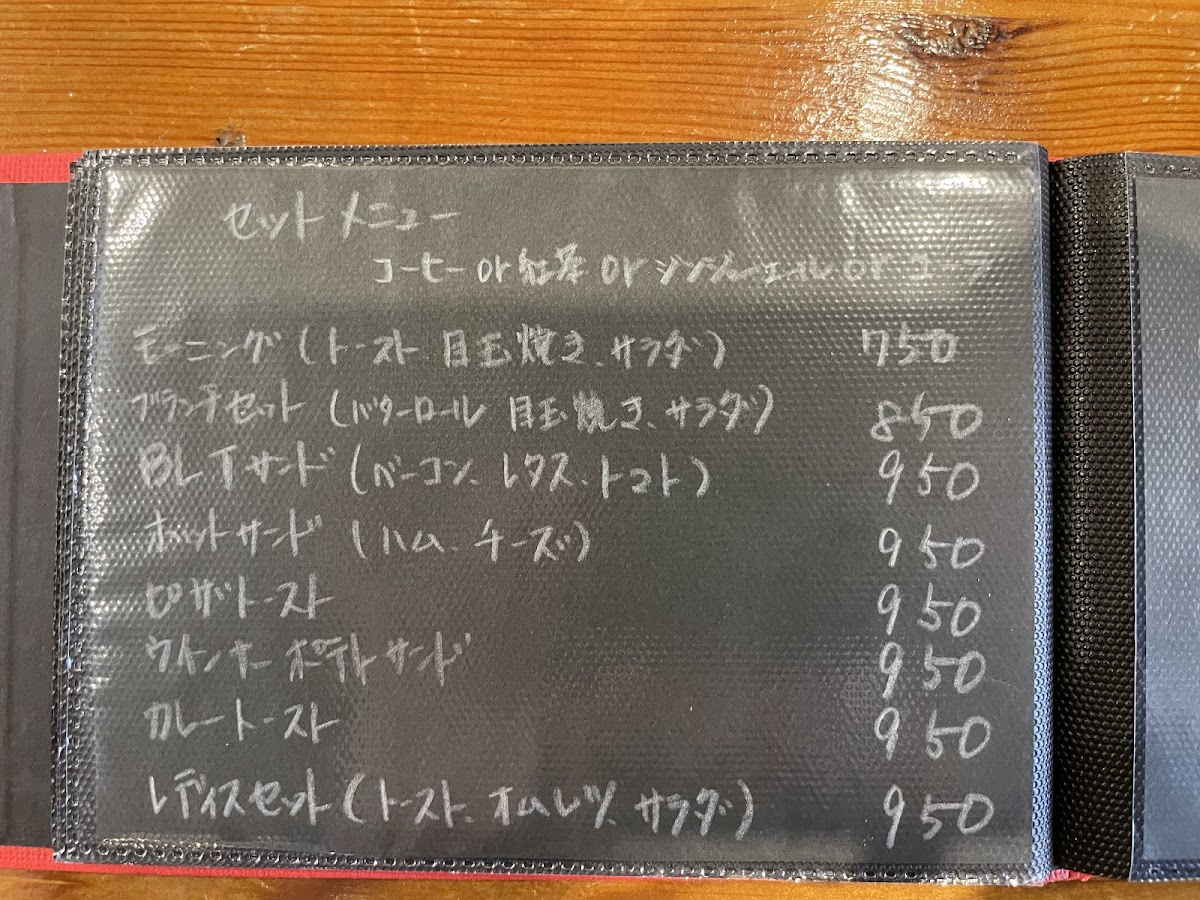 セットメニュー
コーヒー or 紅茶 or ジンジャーエール or コ
モーニング(トースト 目玉焼き、サラダ) 750
ブランチセット(バターロール 目玉焼き、サラダ) 850
BLTサンド(ベーコン、レタス、トマト) 950
ホットサンド(ハム、チーズ) 950
ピザトースト 950
ウインナーポテトサンド 950
カレートースト 950
レディスセット(トースト、オムレツ、サラダ) 950